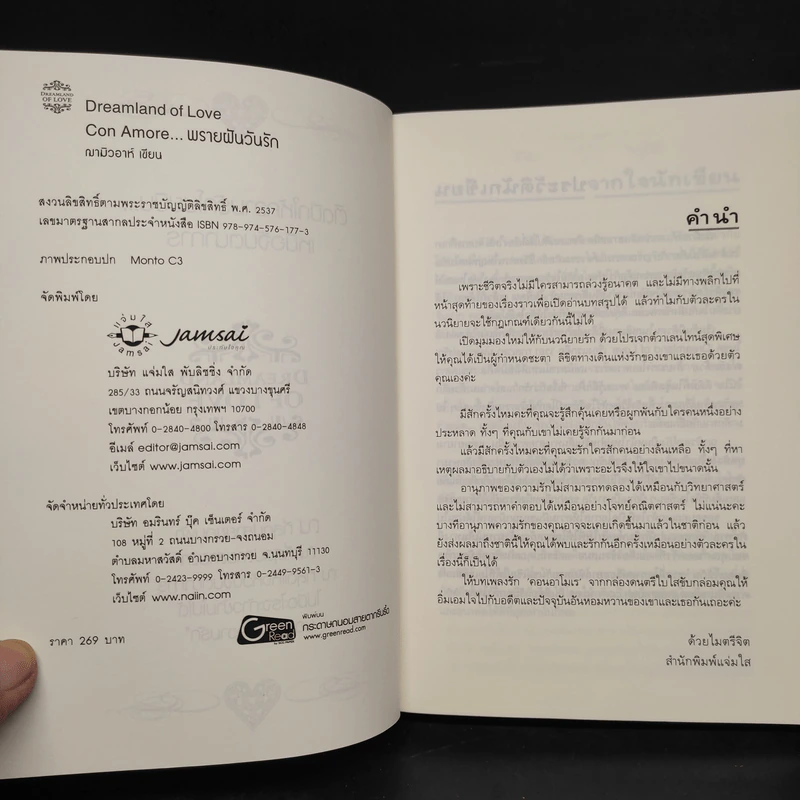 DREAMLAND
OF LOVE
Dreamland of Love
Con Amore... พรายฝันวันรัก
ฌามิวอาห์ เขียน
สงวนลิขสิทธิ์ตามพระราชบัญญัติลิขสิทธิ์ พ.ศ. 2537
เลขมาตรฐานสากลประจำหนังสือ ISBN 978-974-576-177-3
ภาพประกอบปก Monto C3
จัดพิมพ์โดย
แจ่มใส
JAMSAI
Jamsai
บริษัท แจ่มใส พับลิชชิ่ง จำกัด
285/33 ถนนจรัญสนิทวงศ์ แขวงบางขุนศรี
เขตบางกอกน้อย กรุงเทพฯ 10700
โทรศัพท์ 0-2840-4800 โทรสาร 0-2840-4848
อีเมล์ editor@jamsai.com
เว็บไซต์ www.jamsai.com
จัดจำหน่ายทั่วประเทศโดย
บริษัท อมรินทร์ บุ๊ค เซ็นเตอร์ จำกัด
108 หมู่ที่ 2 ถนนบางกรวย-จงถนอม
ตำบลมหาสวัสดิ์ อำเภอบางกรวย จ.นนทบุรี 11130
โทรศัพท์ 0-2423-9999 โทรสาร 0-2449-9561-3
เว็บไซต์ www.naiin.com
ราคา 269 บาท
Green
Read
พิมพ์บน
กระดาษถนอมสายตากรีนรี้ด
www.greenread.com
คำนำ
เพราะชีวิตจริงไม่มีใครสามารถล่วงรู้อนาคต และไม่มีทางพลิกไปที่
หน้าสุดท้ายของเรื่องราวเพื่อเปิดอ่านบทสรุปได้ แล้วทำไมกับตัวละครใน
นวนิยายจะใช้กฎเกณฑ์เดียวกันนี้ไม่ได้
เปิดมุมมองใหม่ให้กับนวนิยายรัก ด้วยโปรเจกต์วาเลนไทน์สุดพิเศษ
ให้คุณได้เป็นผู้กำหนดชะตา ลิขิตทางเดินแห่งรักของเขาและเธอด้วยตัว
คุณเองค่ะ
มีสักครั้งไหมคะที่คุณจะรู้สึกคุ้นเคยหรือผูกพันกับใครคนหนึ่งอย่าง
ประหลาด ทั้งๆ ที่คุณกับเขาไม่เคยรู้จักกันมาก่อน
แล้วมีสักครั้งไหมคะที่คุณจะรักใครสักคนอย่างล้นเหลือ ทั้งๆ ที่หา
เหตุผลมาอธิบายกับตัวเองไม่ได้ว่าเพราะอะไรจึงให้ใจเขาไปขนาดนั้น
อานุภาพของความรักไม่สามารถทดลองได้เหมือนกับวิทยาศาสตร์
และไม่สามารถหาคำตอบได้เหมือนอย่างโจทย์คณิตศาสตร์ ไม่แน่นะคะ
บางทีอานุภาพความรักของคุณอาจจะเคยเกิดขึ้นมาแล้วในชาติก่อน แล้ว
ยังส่งผลมาถึงชาตินี้ให้คุณได้พบและรักกันอีกครั้งเหมือนอย่างตัวละครใน
เรื่องนี้ก็เป็นได้
ให้บทเพลงรัก 'คอนอาโมเร' จากกล่องดนตรีใบใสขับกล่อมคุณให้
อิ่มเอมใจไปกับอดีตและปัจจุบันอันหอมหวานของเขาและเธอกันเถอะค่ะ
ด้วยไมตรีจิต
สำนักพิมพ์แจ่มใส